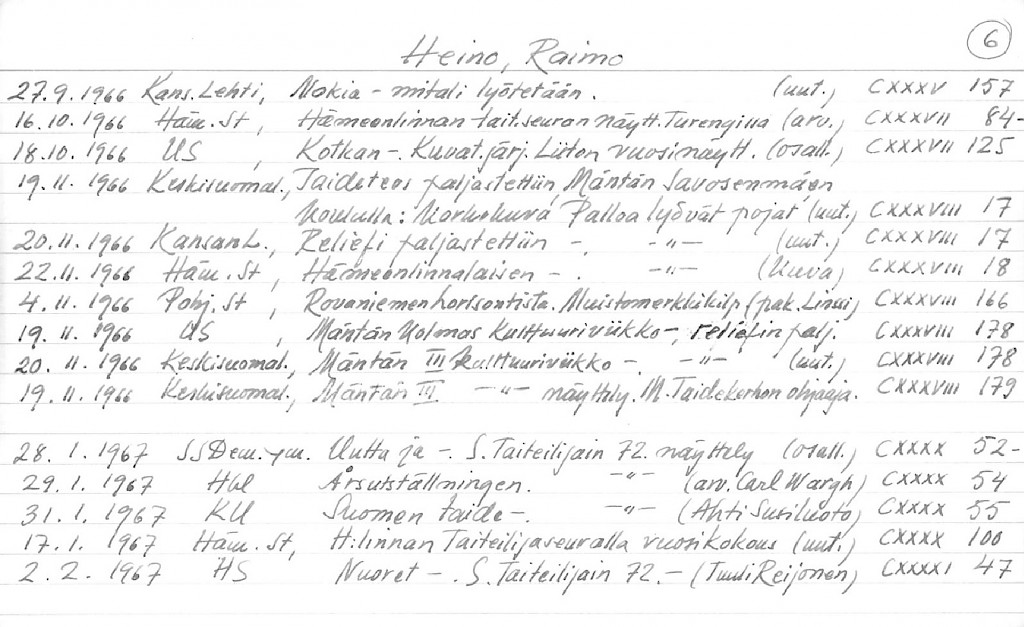 6
Heino, Raimo
27.9.1966 Kans.Lehti, Nokia - mitali lyötetään. (uut.) CXXXV 157
16.10.1966 Häm.St, Hämeenlinnan tait.seuran näytt. Turengissa (arv.) CXXXVII 84-
18.10.1966 US, Kotkan -. Kuvat.järj. Liiton vuosinäytt. (osall.) CXXXVII 125
19.11.1966 Keskisuomal., Taideteos paljastettiin Mäntän Savosenmäen
koululla: Korkokuva Palloa lyövät pojat (uut.) CXXXVIII 17
20.11.1966 KansanL., Reliefi paljastettiin -. -"- (uut.) CXXXVIII 17
22.11.1966 Häm.St, Hämeenlinnalaisen -. -"- (kuva) CXXXVIII 18
4.11.1966 Pohj.St, Rovaniemen horisontista. Muistomerkkikilp. (pak. Linssi) CXXXVIII 166
19.11.1966 US, Mäntän kolmas kulttuuriviikko -, reliefin palj. CXXXVIII 178
20.11.1966 Keskisuomal., Mäntän III kulttuuriviikko -. -"- (uut.) CXXXVIII 178
19.11.1966 Keskisuomal., Mäntän III. -"- näyttely. M. Taidekerhon ohjaaja. CXXXVIII 179
28.1.1967 SSDem.-ym. Uutta ja -. S. Taiteilijain 72. näyttely (osall.) CXXXX 52-
29.1.1967 Hbl Årsutställningen. -"- (arv. Carl Wargh) CXXXX 54
31.1.1967 KU Suomen taide -. -"- (Ahti Susiluoto) CXXXX 55
17.1.1967 Häm.St, H:linnan Taiteilijaseuralla vuosikokous (uut.) CXXXX 100
2.2.1967 HS Nuoret -. S. Taiteilijain 72. - (Tuuli Reijonen) CXXXXI 47